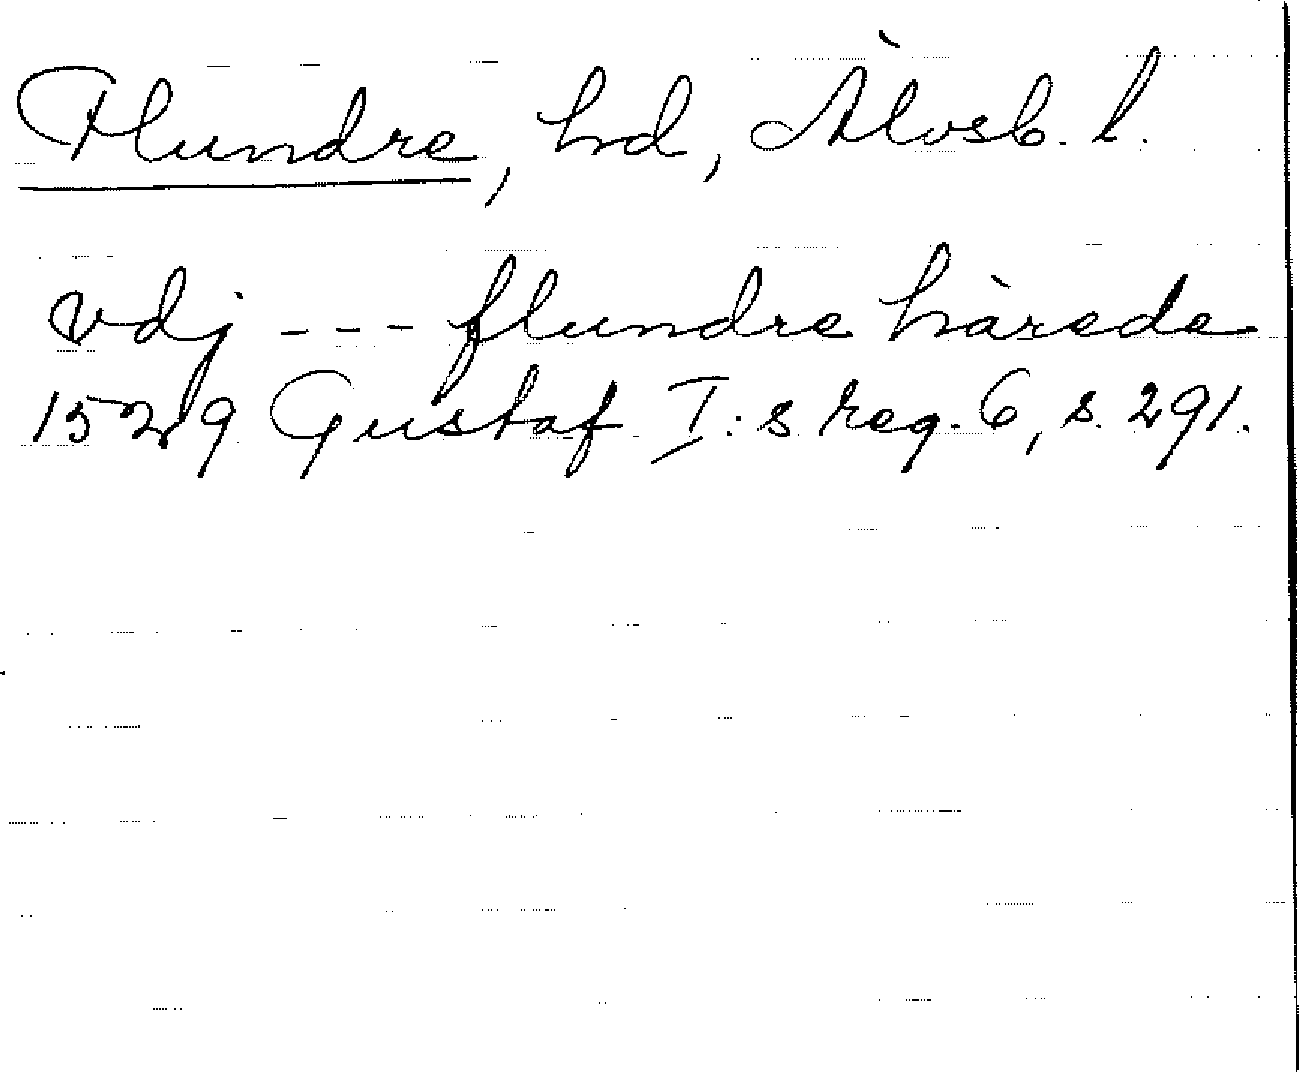 Flundre, hd, Älvsb. l.
vdj --- flundre härede
1529 Gustaf I:s reg. 6, s. 291.